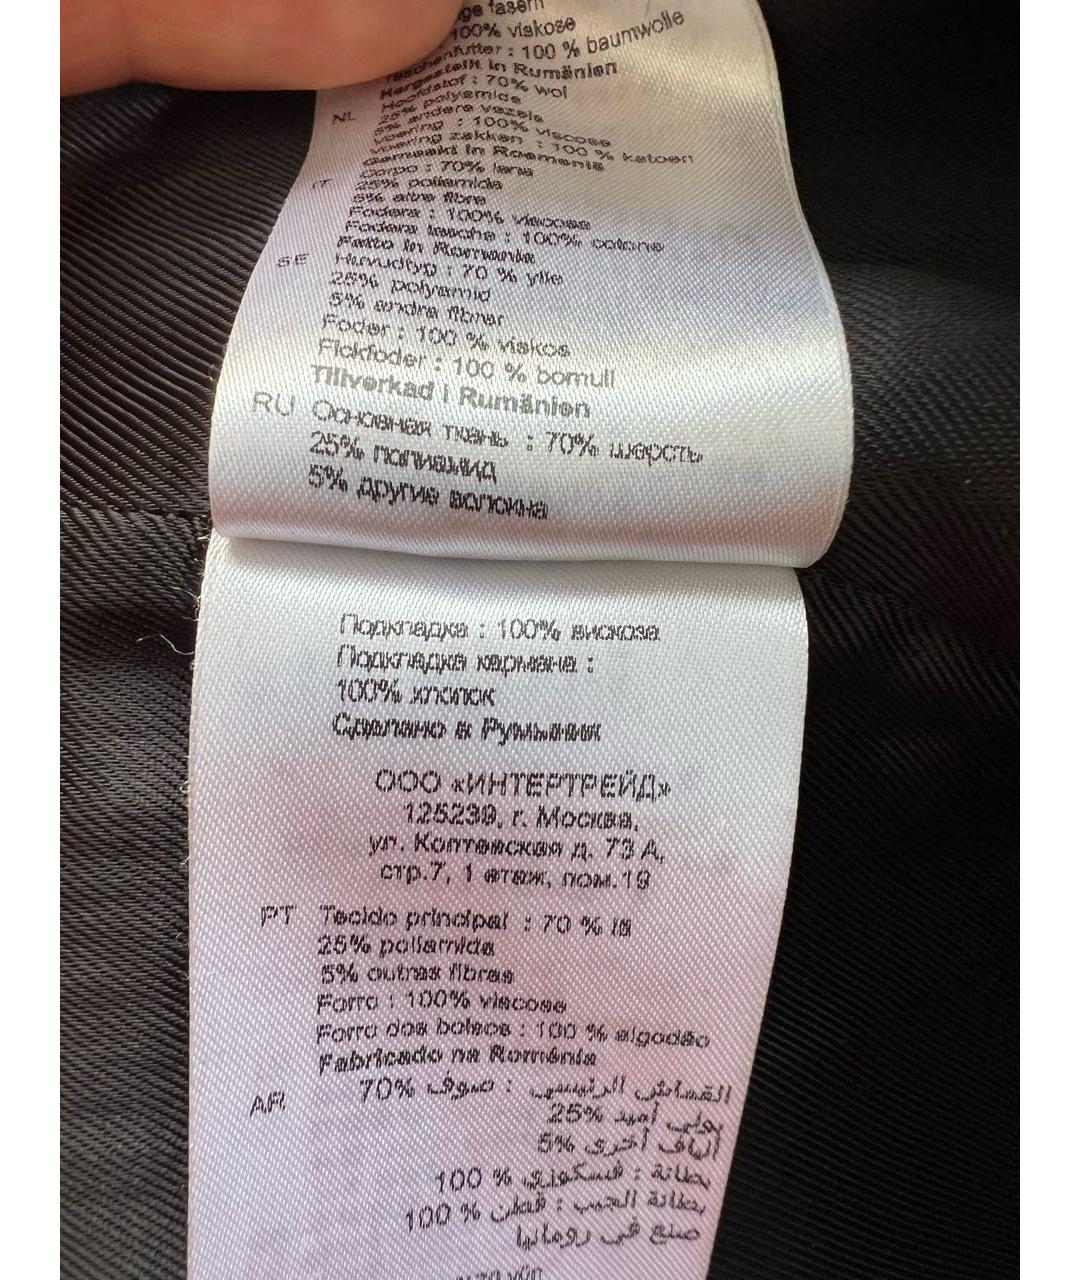 ge fasern
100% viskose
Taschenfutter : 100 % baumwolle
Hergestellt in Rumänien
NL Hoofdstof : 70% wol
25% polyamide
5% andere vezels
Voering : 100% viscose
Voering zakken : 100 % katoen
Gemaakt in Roemenie
IT Corpo : 70% lana
25% poliamida
5% altre fibre
Fodera : 100% viscosa
Fodera tasche : 100% cotone
Fatto in Romania
SE Huvudtyg : 70 % ylle
25% polyamid
5% andra fibrer
Foder : 100 % viskos
Fickfoder : 100 % bomull
Tillverkad i Rumänien
RU Основная ткань : 70% шерсть
25% полиамид
5% другие волокна
Подкладка : 100% вискоза
Подкладка кармана :
100% хлопок
Сделано в Румынии
ООО «ИНТЕРТРЕЙД»
125239, г. Москва,
ул. Коптевская д. 73 А,
стр.7, 1 этаж, пом.19
PT Tecido principal : 70 % lã
25% poliamida
5% outras fibras
Forro : 100% viscose
Forro dos bolsos : 100 % algodão
Fabricado na Roménia
AR القماش الرئيسي : صوف 70%
بولي أميد 25%
ألياف أخرى 5%
بطانة : فسكوزي % 100
بطانة الجيب : قطن % 100
صنع في رومانيا